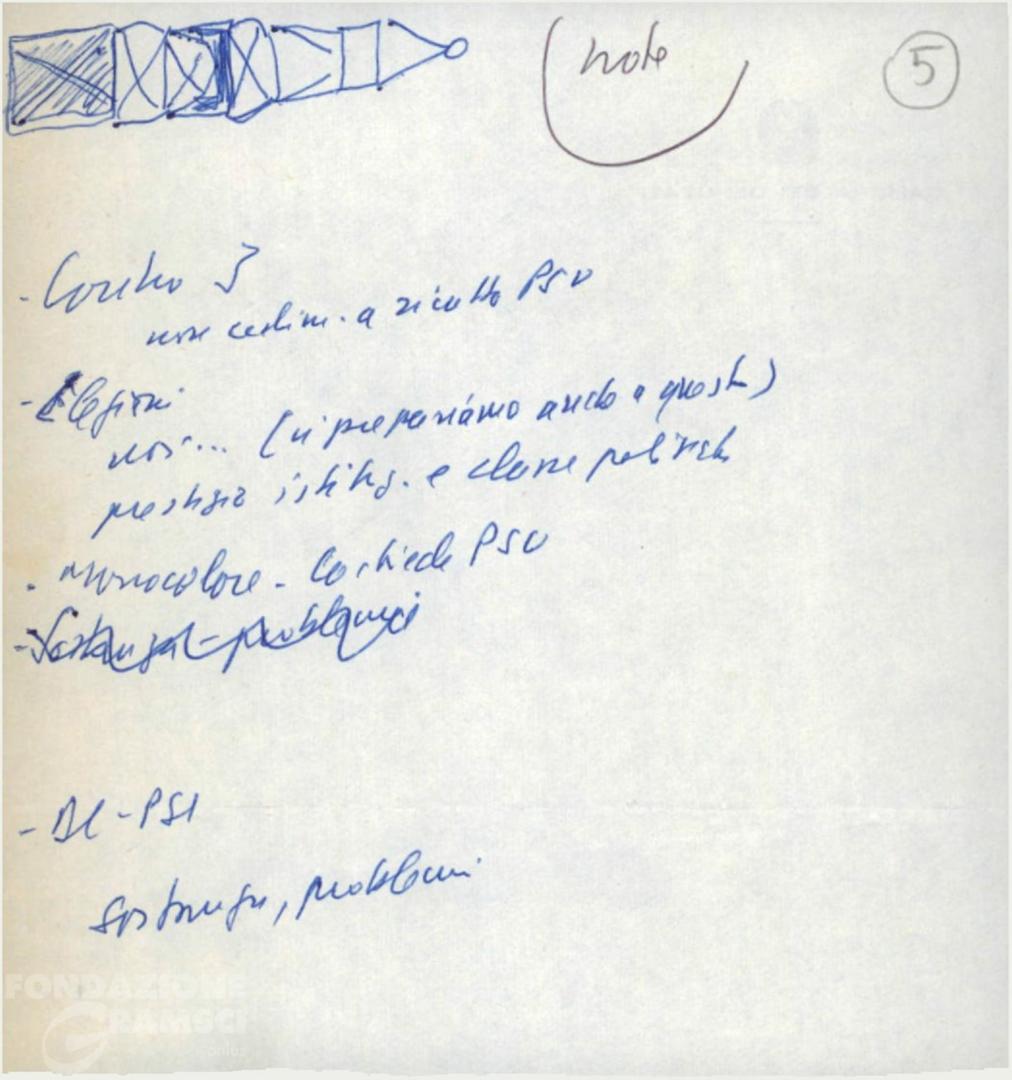 note
5
- Contro 3
non cedim. a ricatto PSU
- Elezioni
noi... (ci prepariamo anche a questo)
prestigio istituz. e classe politica
- Monocolore - Lo chiede PSU
- Sostanza - problemi
- DC - PSI
sostanza, problemi
FONDAZIONE
GRAMSCI